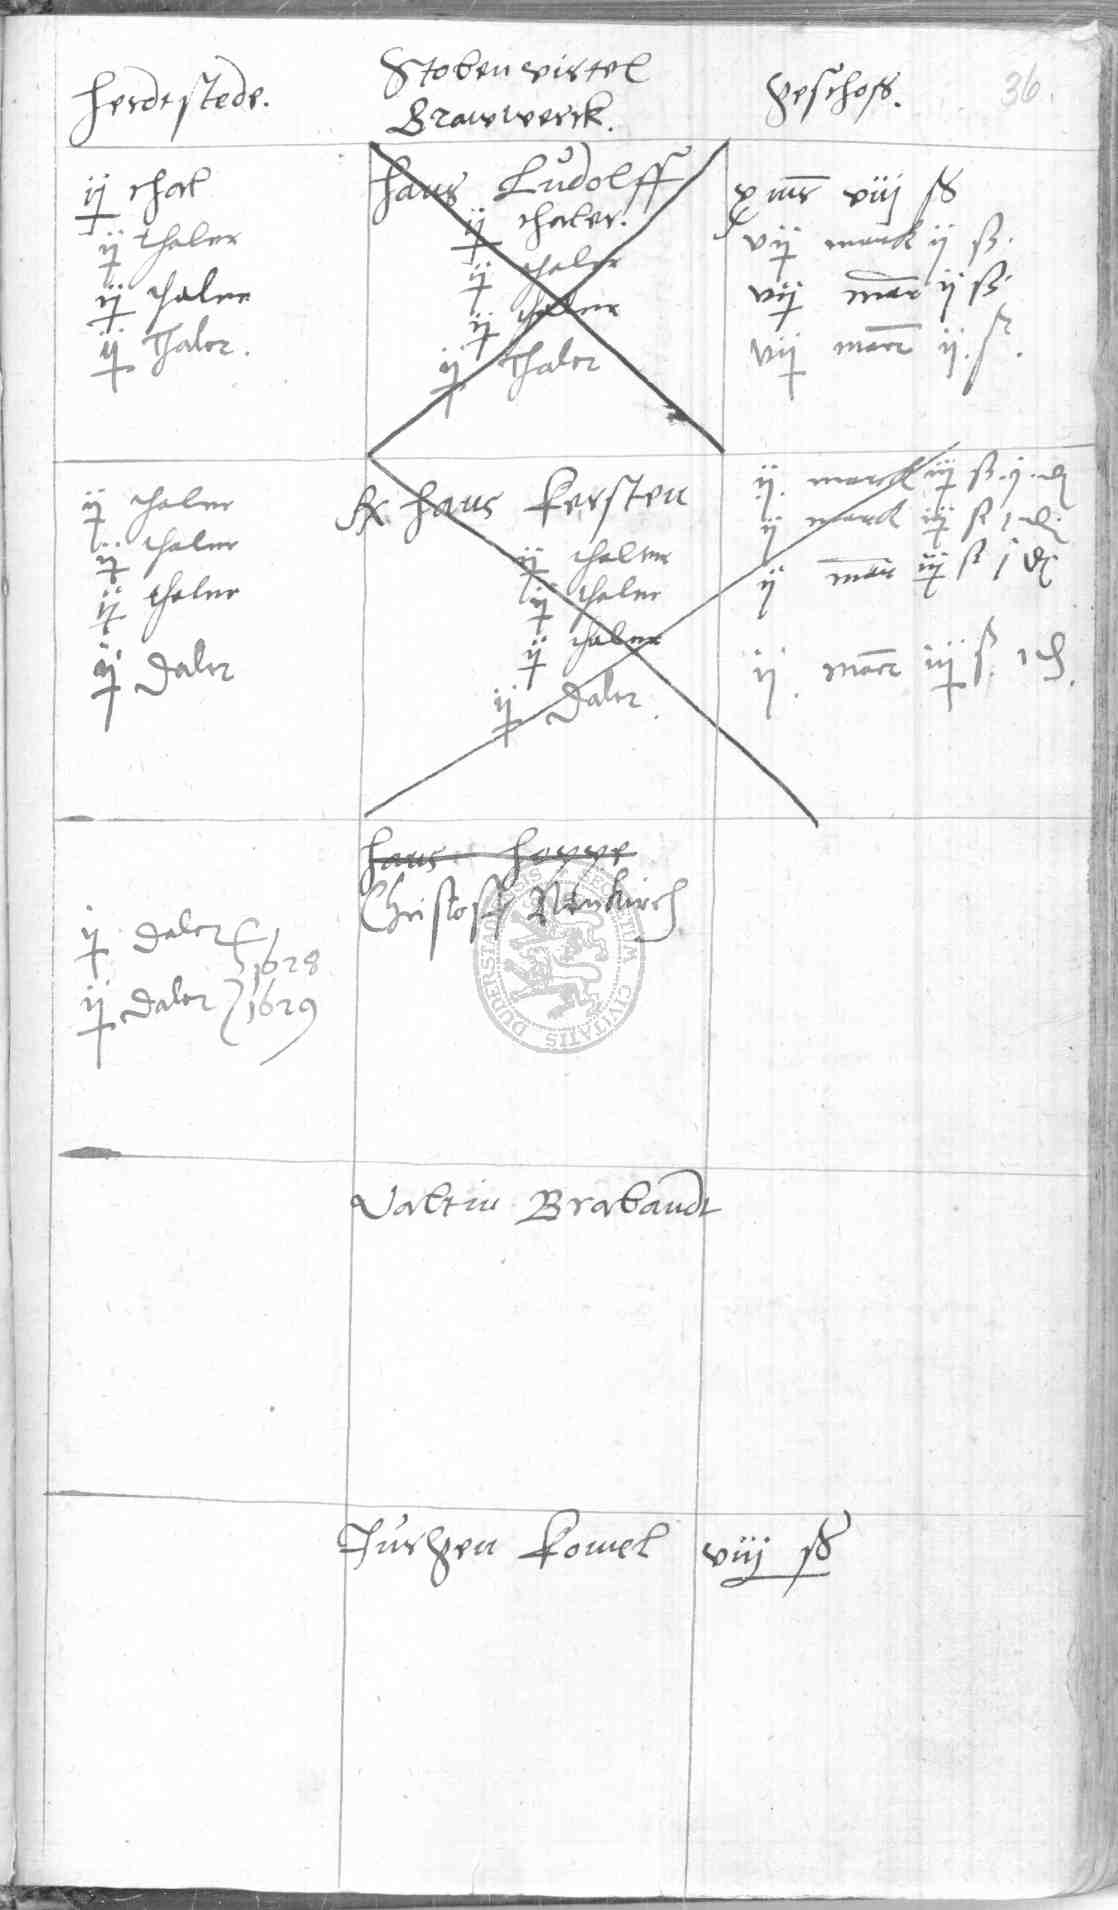 Herdtstede.
Stobenvirtel
Brauwerck.
Geschoss.
36.
ij thal
Hans Ludolff
x mr viij ß
ij thaler
ij thaler.
vij marck ij ß.
ij thaler
ij thaler
vij marc ij ß.
ij Thaler.
ij thaler
ij Thaler
vij marc ij. ß.
ij thaler
Hans Kersten
ij. marck iij ß. j. d
ij thaler
ij thaler
ij marck iij ß 1 d.
ij thaler
ij thaler
ij marc iij ß j d
ij Daler
ij thaler
ij Daler.
ij. marc iij ß. 1 d.
Hans Hoppe
Christoff Neukirch
ij Daler 1628
ij Daler 1629
SECRETUM CIVITATIS DUDERSTADENSIS
Valtin Brabandt
Jurgen Komel
viij ß